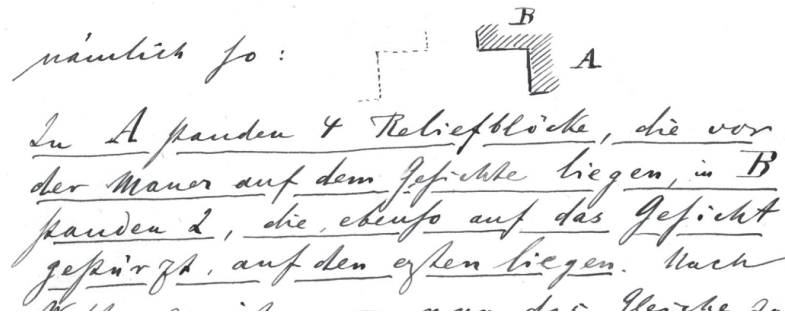 B
nämlich so: A
In A standen 4 Reliefblöcke, die vor
der Mauer auf dem Gesichte liegen, in B
standen 2, die, ebenso auf das Gesicht
gestürzt, auf den ersten liegen. Nach
das Gleiche